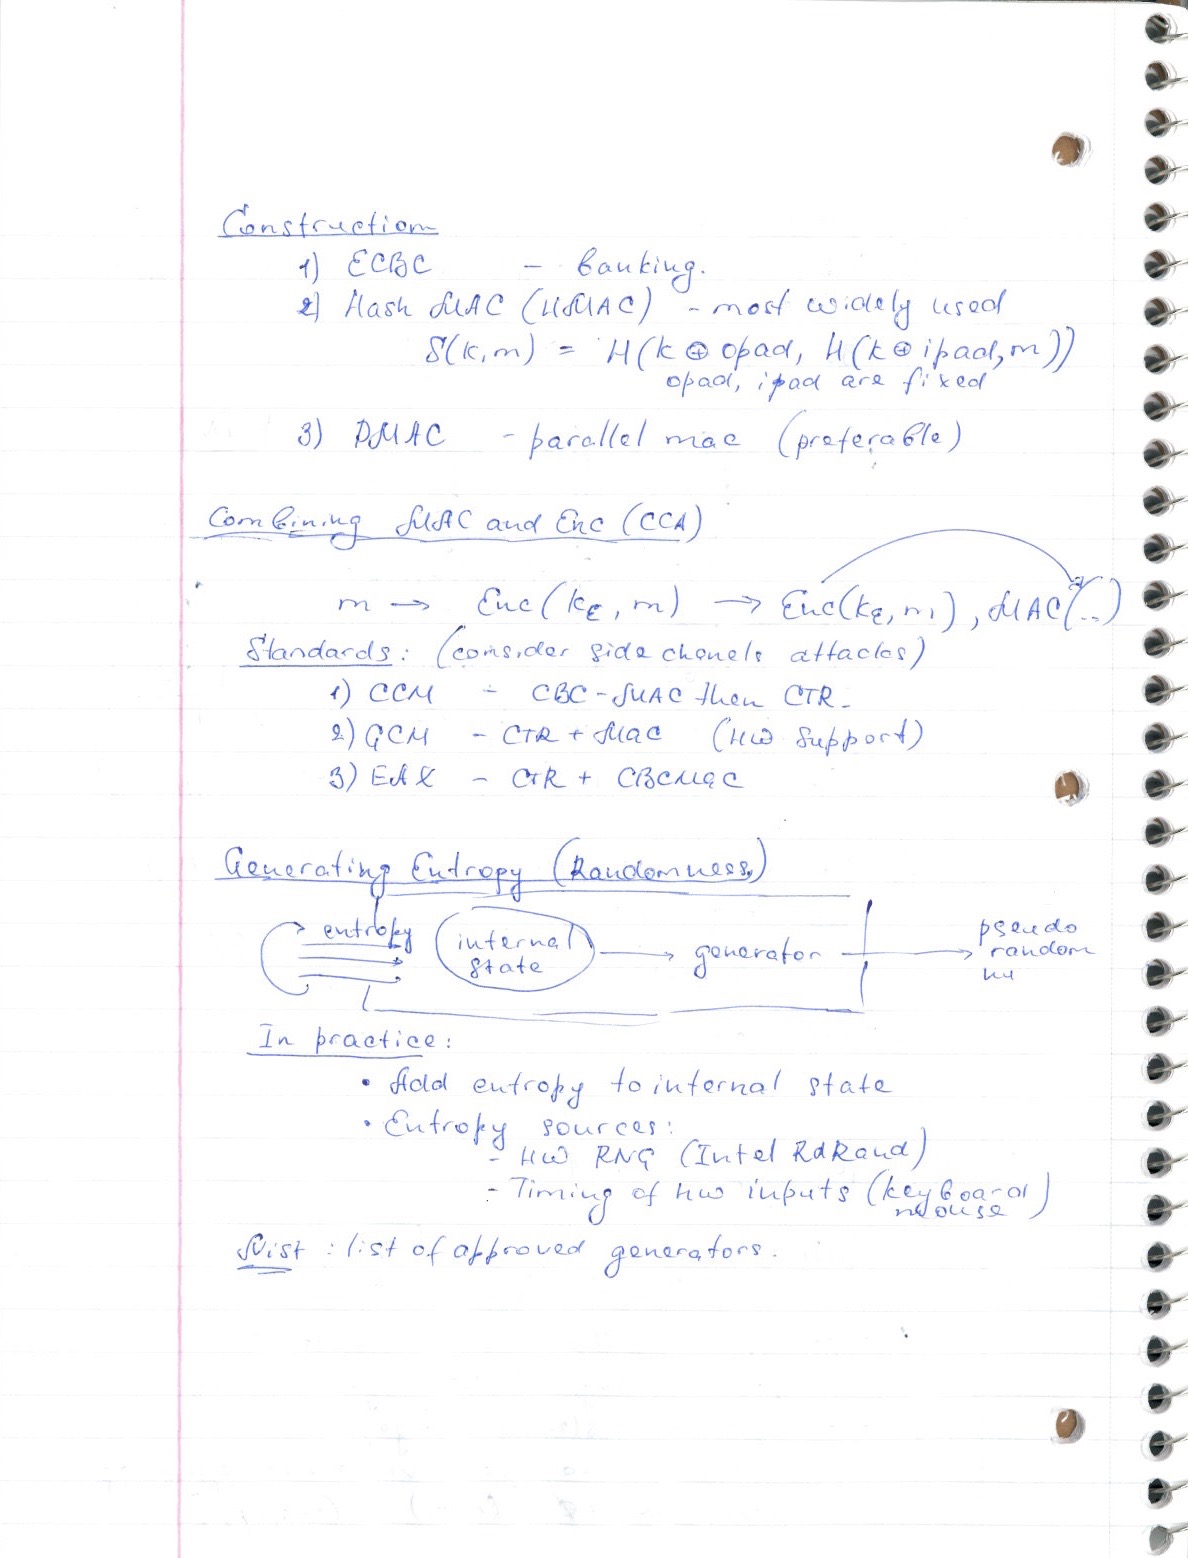 Construction
1) ECBC - banking.
2) Hash MAC (HMAC) - most widely used
S(k,m) = H(k ⊕ opad, H(k ⊕ ipad, m))
opad, ipad are fixed
3) PMAC - parallel mac (preferable)
Combining MAC and Enc (CCA)
m → Enc(kE, m) → Enc(kE, m), MAC(..)
Standards: (consider side chanels attacks)
1) CCM - CBC-MAC then CTR.
2) GCM - CTR + MAC (HW support)
3) EAX - CTR + CBCMAC
Generating Entropy (Randomness)
entropy internal state → generator → pseudo random
In practice:
• Add entropy to internal state
• Entropy sources:
- HW RNG (Intel RdRand)
- Timing of HW inputs (keyboard mouse)
Nist : list of approved generators.